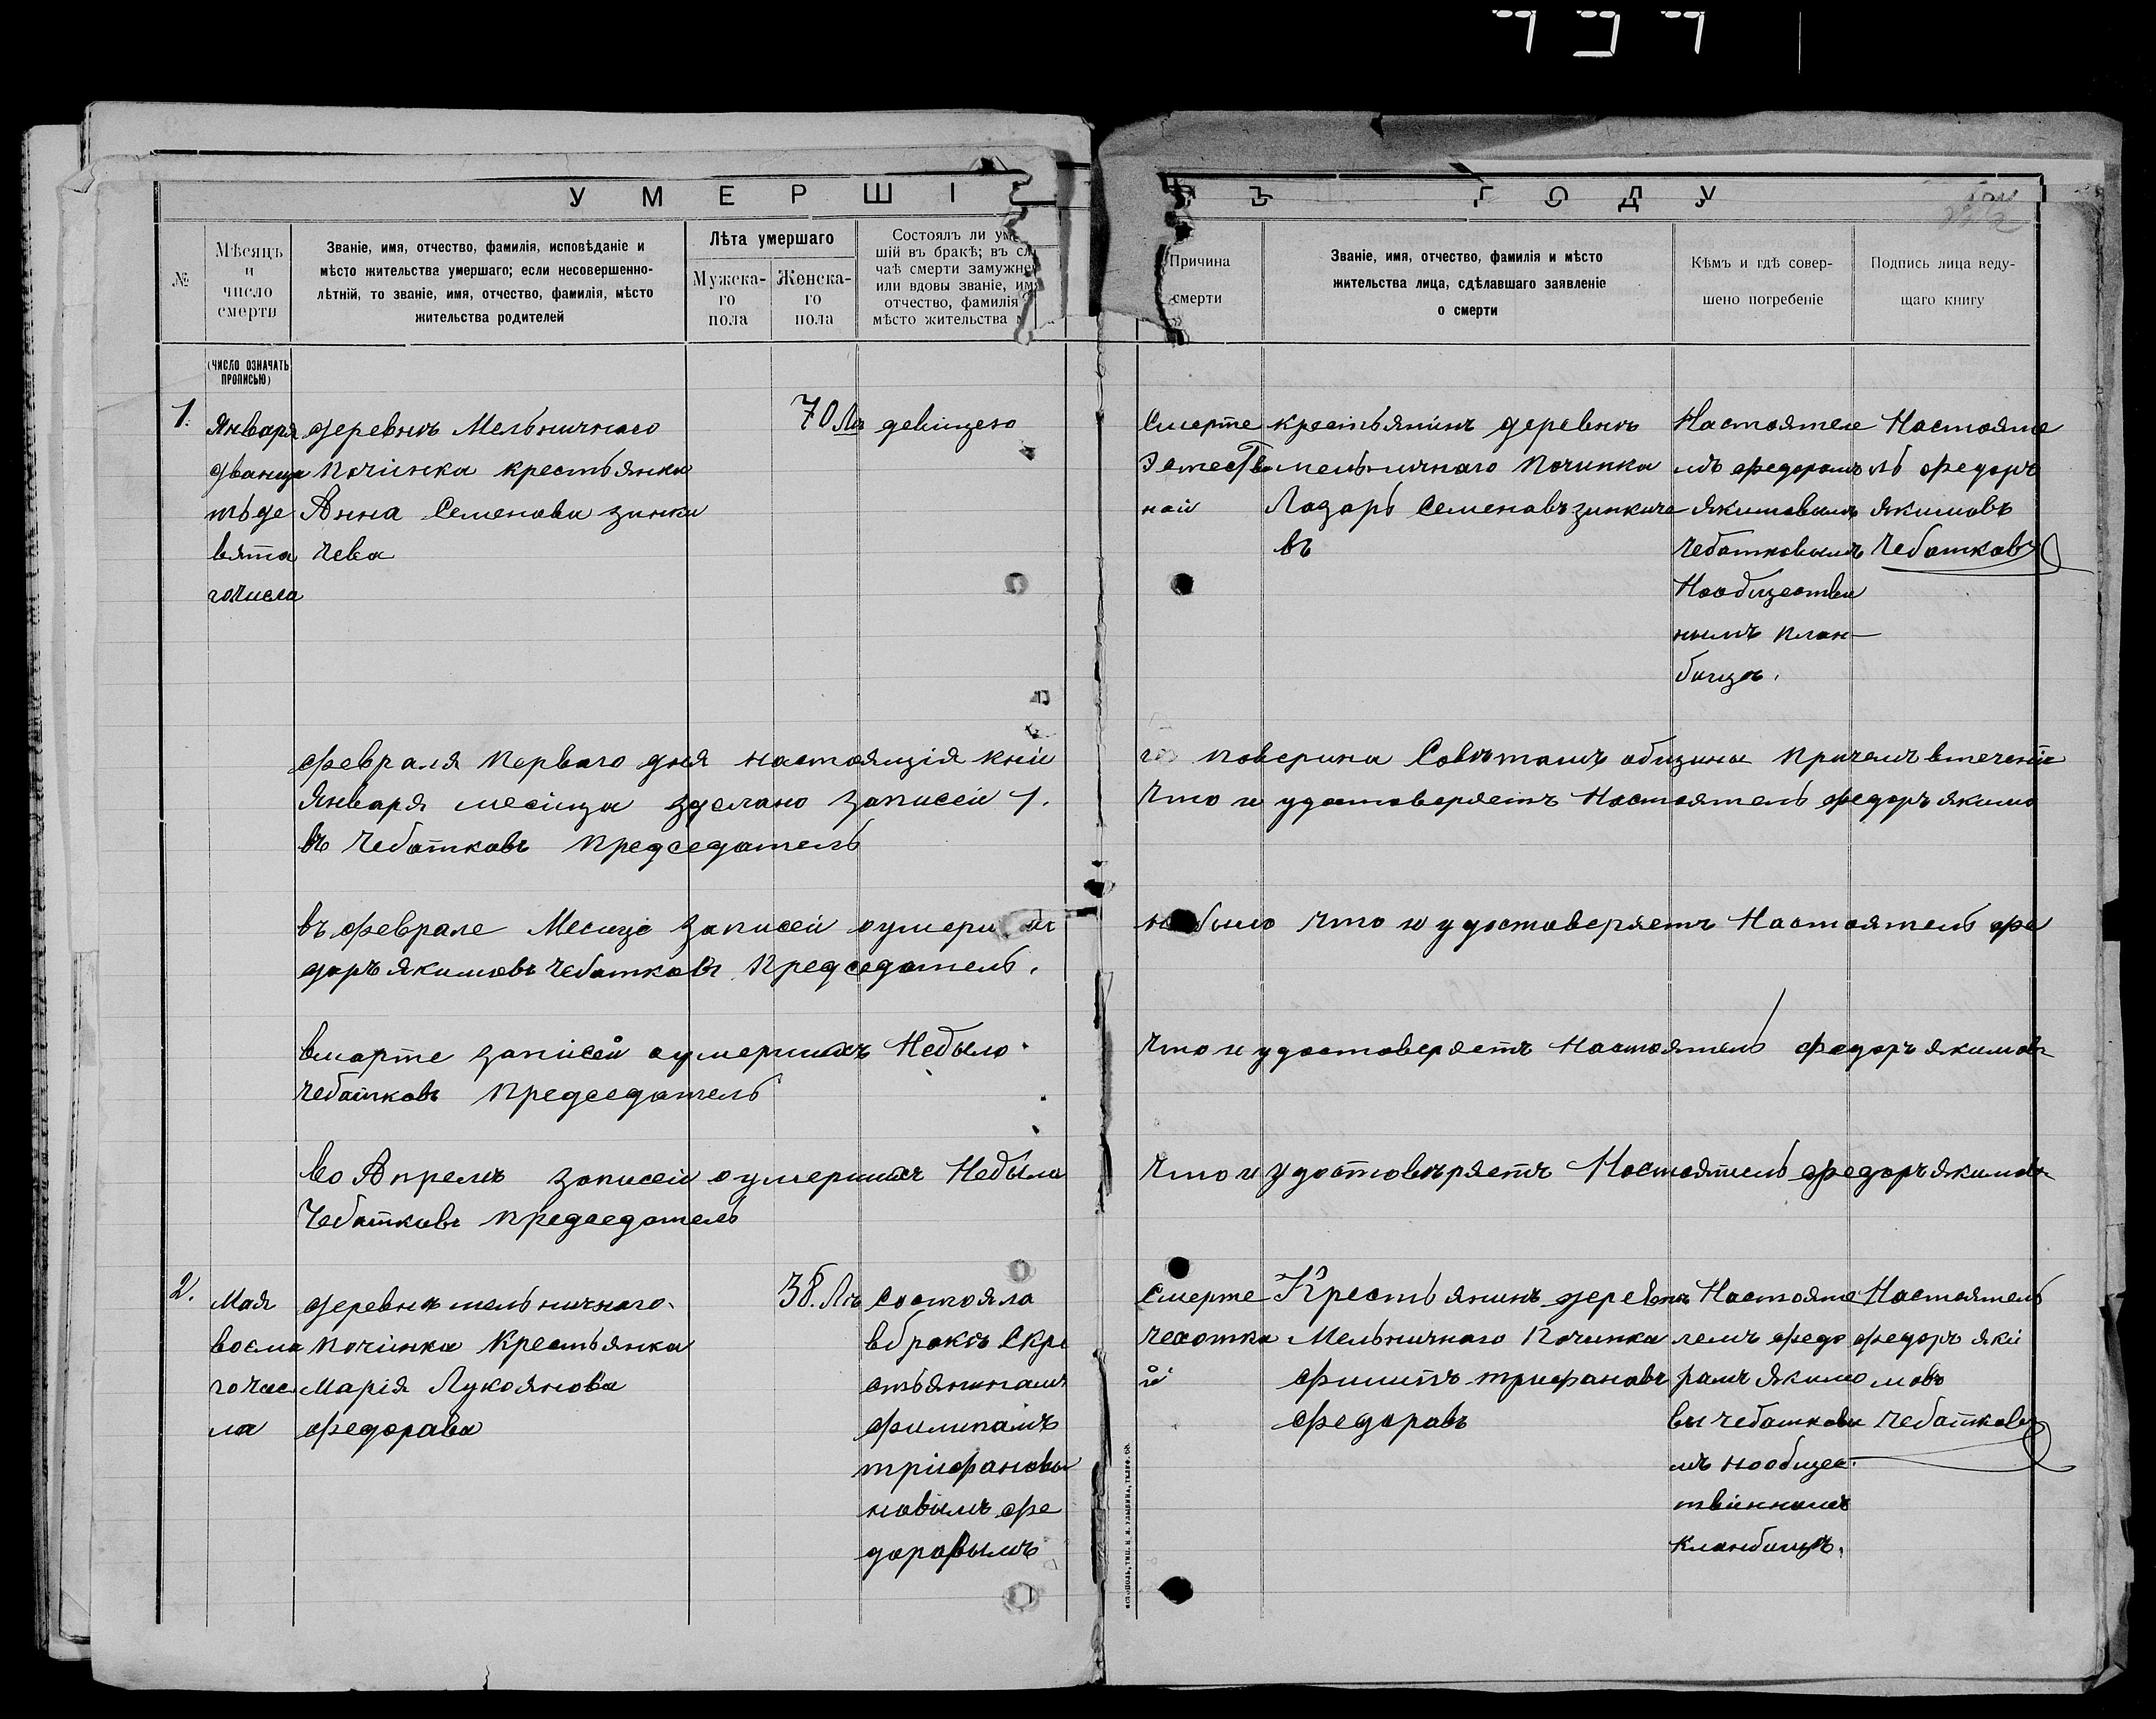 УМЕРШІ
Ъ ГОДУ
№
Мѣсяцъ
и
число
смерти
Званіе, имя, отчество, фамилія, исповѣданіе и
мѣсто жительства умершаго; если несовершенно-
лѣтній, то званіе, имя, отчество, фамилія, мѣсто
жительства родителей
Лѣта умершаго
Мужска-
го
пола
Женска-
го
пола
Состоялъ ли уме
шій въ бракѣ; въ сл
чаѣ смерти замужне
или вдовы званіе, имя
отчество, фамилія
мѣсто жительства м
Причина
смерти
Званіе, имя, отчество, фамилія и мѣсто
жительства лица, сдѣлавшаго заявленіе
о смерти
Кѣмъ и гдѣ совер-
шено погребеніе
Подпись лица веду-
щаго книгу
(ЧИСЛО ОЗНАЧАТЬ
ПРОПИСЬЮ)
1.
Января
дванца
тьде
вята
гочисла
деревнѣ Мельничнаго
починка крестьянка
Анна Семенова зинки
чева
70 Лѣ
девицею
Смерте
Эетеств
ной
крестьянинъ деревнѣ
мельничнаго Починка
Лазарь Семеновъ зинкиче
въ
Настоятеле
мъ федоромъ
якимовымъ
чебатковымъ
Наобществен
нымъ клан-
бищѣ.
Настояте
ль федоръ
якимовъ
Чебатковъ
февраля Перваго дня настоящія кни
го поверина Совѣтомъ общины Причемъ втеченіе
Января месяца зделано записей 1.
Что и удостоверяетъ Настоятель федоръ якимо
въ Чебатковъ Председатель
въ феврале Месяце записей оумерших
небыло что и удостоверяетъ Настоятель фе
доръ якимовъ чебатковъ Председатель.
вмарте записей оумершихъ Небыло
Что и удостоверяетъ Настоятель федоръ якимовъ
чебатковъ Председатель
во Апрелѣ записей оумершихъ Небыло
Что и удостовѣряетъ Настоятель федоръ якимовъ
Чебатковъ Председатель
2.
Мая
восма
гочис
ла
деревнѣ мельничнаго
починка Крестьянка
Марія Лукоянова
федорава
38. Лѣ
Состояла
вбракѣ Скре
стьяниномъ
филипамъ
трифановы
новымъ фе
доровымъ
Смерте
чехотка
й
Крестьянинъ деревнѣ
Мельничнаго Починка
филипъ трифановъ
федоравъ
Настояте
лемъ федо
рамъ якимо
вы чебаткавы
мъ нообщес
твенномъ
кланбищѣ.
Настоятель
федоръ яки
мовъ
Чебатковъ